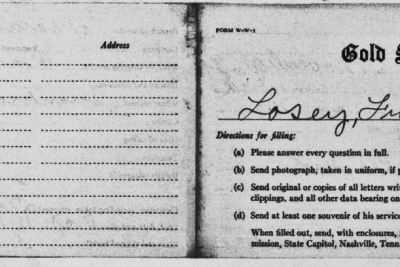 Address
FORM W-W-1
Gold
Losey,
Directions for filing:
(a) Please answer every question in full.
(b) Send photograph, taken in uniform, if p
(c) Send original or copies of all letters writ
clippings, and all other data bearing on
(d) Send at least one souvenir of his service
When filled out, send, with enclosures,
mission, State Capitol, Nashville, Tenn